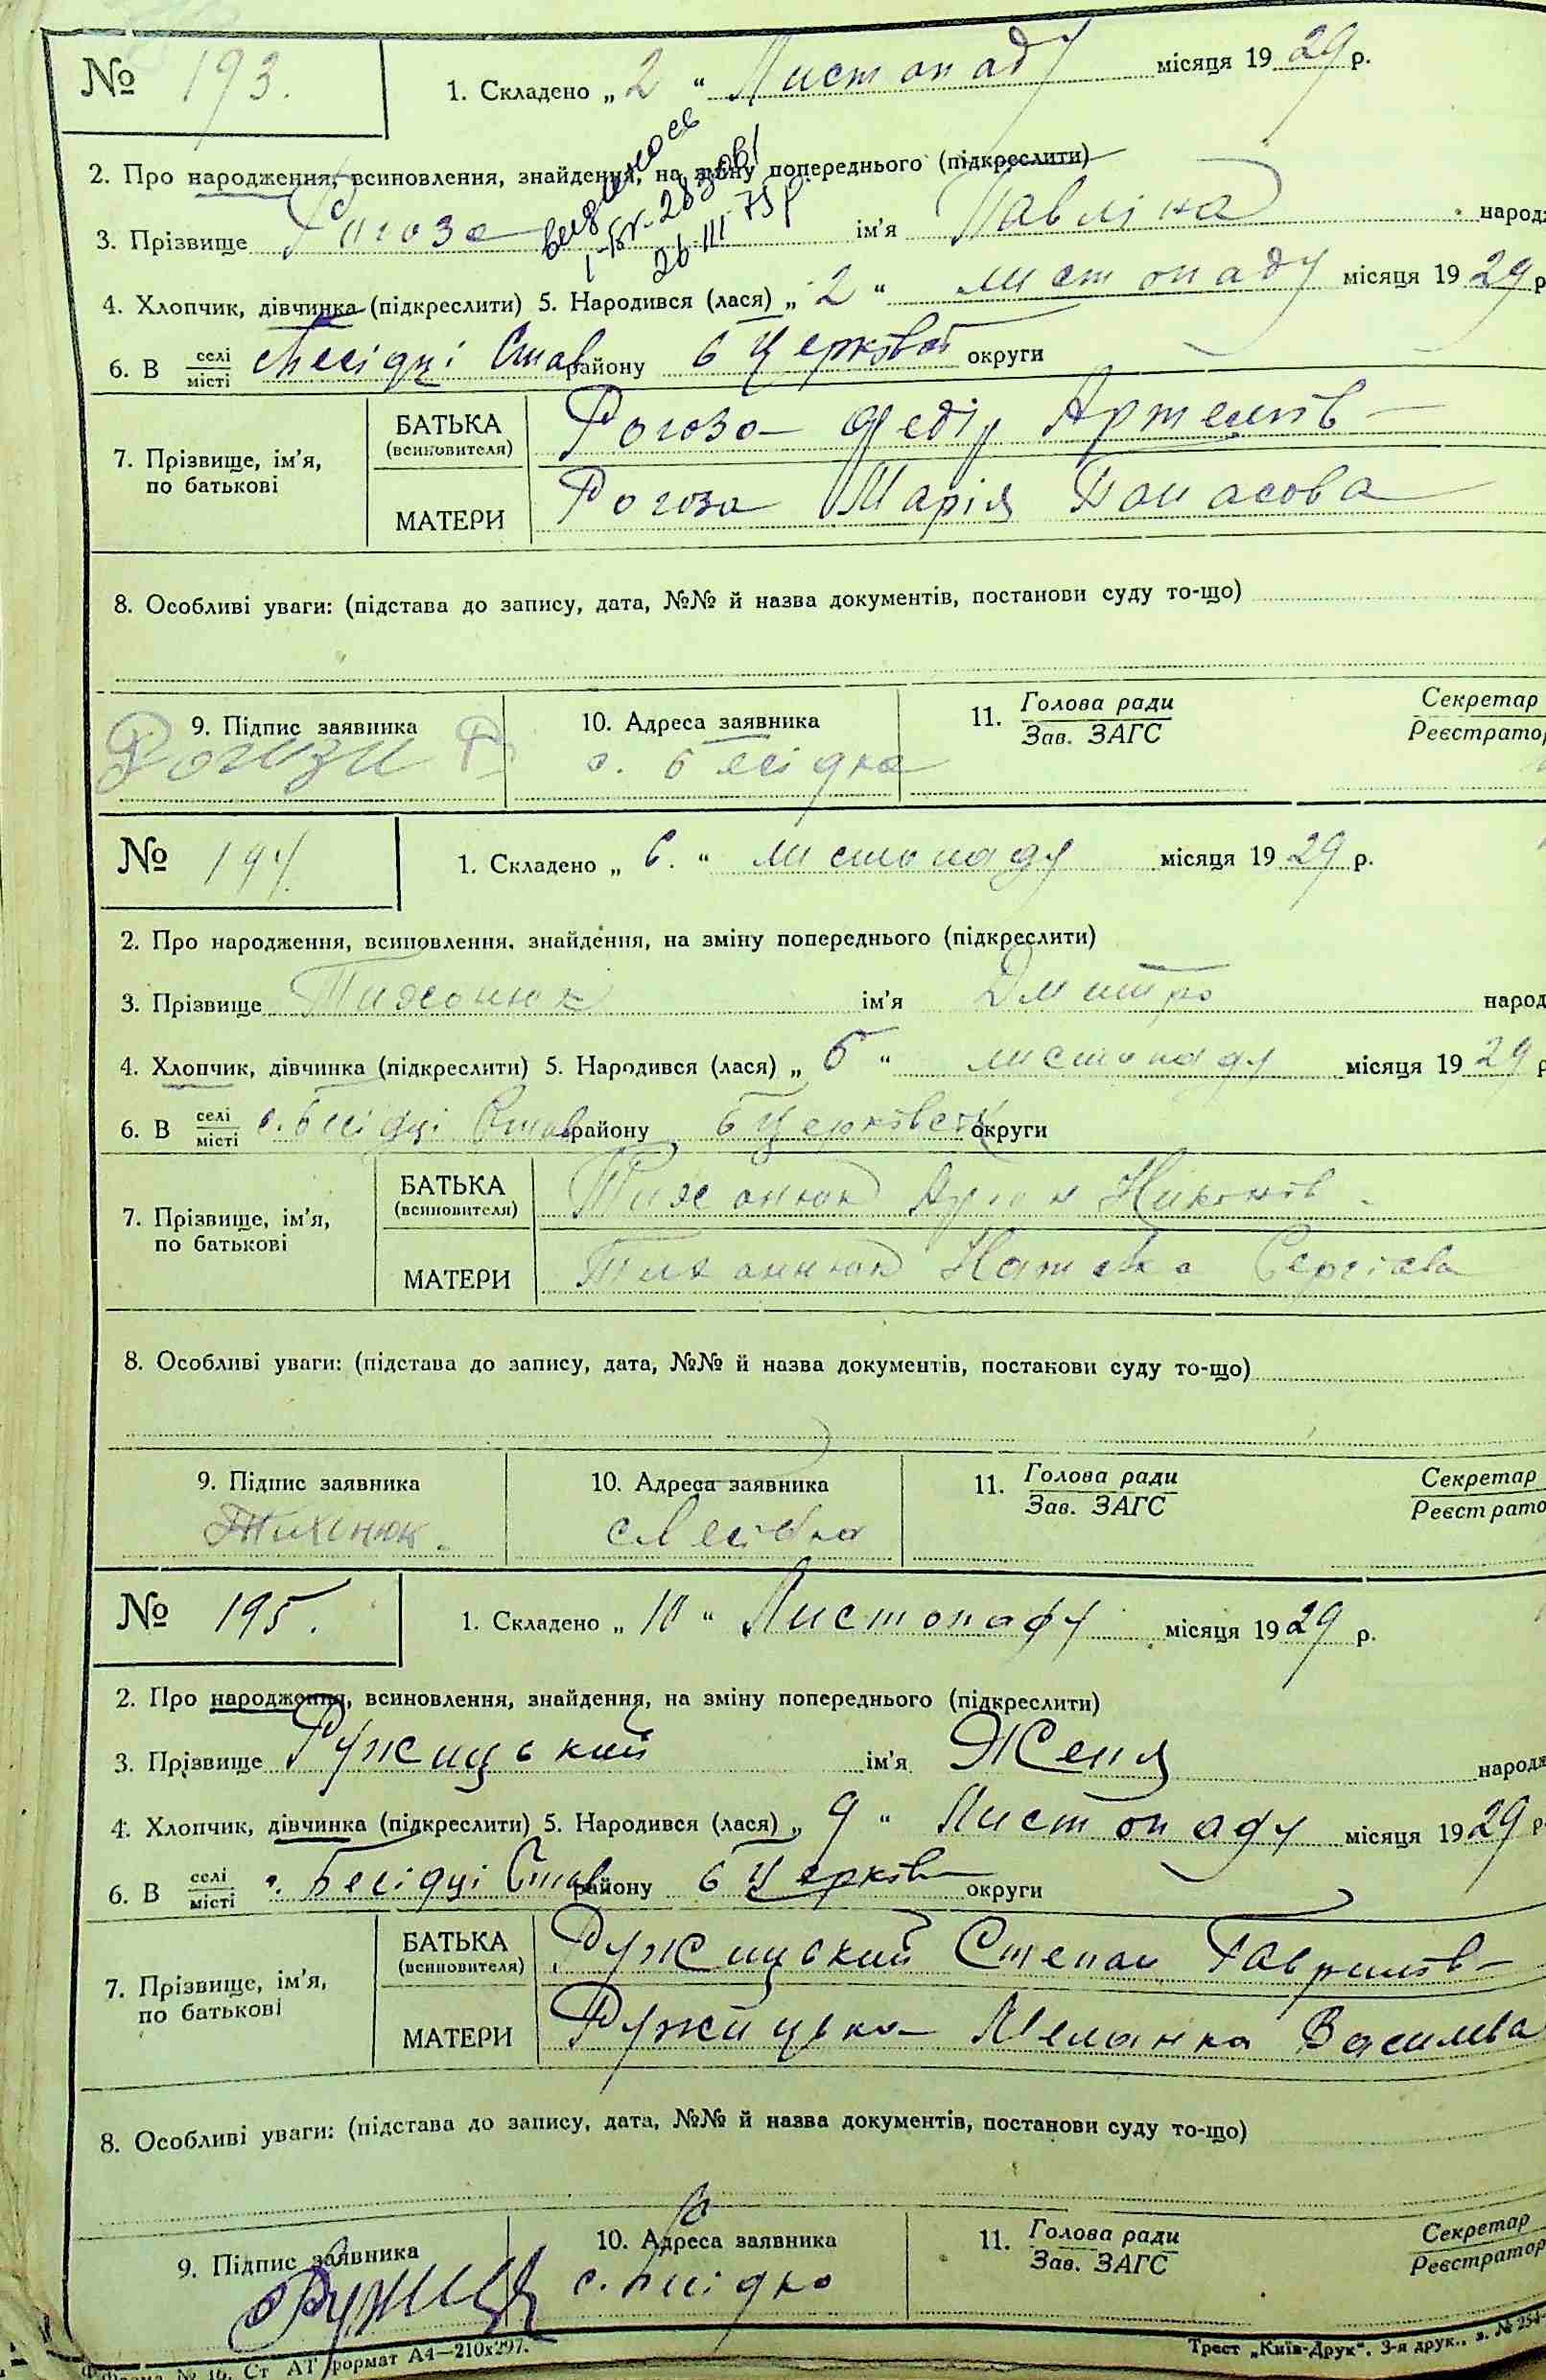 № 193. 1. Складено „2“ Листопаду місяця 1929 р.
2. Про народження, всиновлення, знайдення, на зміну попереднього (підкреслити)
3. Прізвище Рогоза ім'я Павліна народ
26 III 75 р
4. Хлопчик, дівчинка (підкреслити) 5. Народився (лася) „2“ листопаду місяця 1929 р
6. В селі місті Бесідці Став району Б Церковс округи
7. Прізвище, ім'я, по батькові
БАТЬКА (всиновителя) Рогоза Федір Артемів
МАТЕРИ Рогоза Марія Панасова
8. Особливі уваги: (підстава до запису, дата, №№ й назва документів, постанови суду то-що)
9. Підпис заявника 10. Адреса заявника 11. Голова ради Секретар
Зав. ЗАГС Реєстратор
Рогози с. Бесідка
№ 194. 1. Складено „6.“ листопаду місяця 1929 р.
2. Про народження, всиновлення, знайдення, на зміну попереднього (підкреслити)
3. Прізвище Тихонюк ім'я Дмитро народ
4. Хлопчик, дівчинка (підкреслити) 5. Народився (лася) „6“ листопаду місяця 1929 р
6. В селі місті с. Бесідці Став району Б Церковськ округи
7. Прізвище, ім'я, по батькові
БАТЬКА (всиновителя) Тихонюк Никонів
МАТЕРИ Тихонюк Сергієва
8. Особливі уваги: (підстава до запису, дата, №№ й назва документів, постанови суду то-що)
9. Підпис заявника 10. Адреса заявника 11. Голова ради Секретар
Зав. ЗАГС Реєстрато
Тихонюк. с Бесідка
№ 195. 1. Складено „10“ Листопаду місяця 1929 р.
2. Про народження, всиновлення, знайдення, на зміну попереднього (підкреслити)
3. Прізвище Ружицький ім'я Женя народж
4. Хлопчик, дівчинка (підкреслити) 5. Народився (лася) „9“ Листопаду місяця 1929 р.
6. В селі місті с. Бесідці Став району Б Церків округи
7. Прізвище, ім'я, по батькові
БАТЬКА (всиновителя) Ружицький Степан Гаврилів
МАТЕРИ Ружицька Меланка Василева
8. Особливі уваги: (підстава до запису, дата, №№ й назва документів, постанови суду то-що)
9. Підпис заявника 10. Адреса заявника 11. Голова ради Секретар
Зав. ЗАГС Реєстратор
Ружиц с. Бесідка
№ 16. Ст АТ формат А4—210х297. Трест „Київ-Друк“. 3-я друк., з. № 254